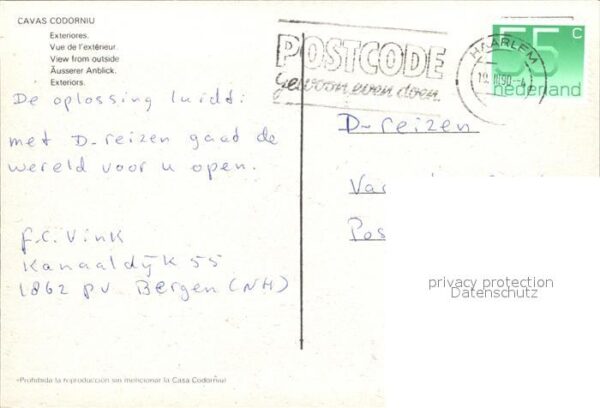 CAVAS CODORNIU
Exteriores.
Vue de l'extérieur.
View from outside
Äusserer Anblick.
Exteriors.
POSTCODE
gewoon even doen
HAARLEM
55 c
nederland
De oplossing luidt:
met D-reizen gaat de
wereld voor u open.
F.C. Vink
Kanaaldijk 55
1862 PV Bergen (NH)
D-reizen
privacy protection
Datenschutz
«Prohibida la reproducción sin mencionar la Casa Codorniu»